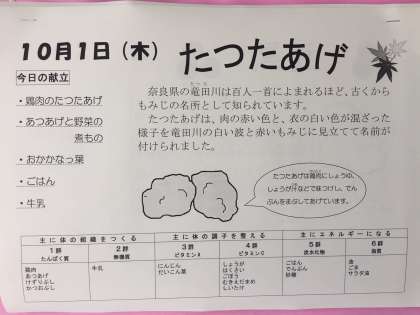 10月1日（木）
たつたあげ
今日の献立
・鶏肉のたつたあげ
・あつあげと野菜の
煮もの
・おかかなっ葉
・ごはん
・牛乳
奈良県の竜田川は百人一首によまれるほど、古くから
もみじの名所として知られています。
たつたあげは、肉の赤い色と、衣の白い色が混ざった
様子を竜田川の白い波と赤いもみじに見立てて名前が
付けられました。
たつたあげは鶏肉にしょうゆ、
しょうがなどで味つけし、でん
ぷんをまぶしてあげています。
主に体の組織をつくる
主に体の調子を整える
主にエネルギーになる
1群 たんぱく質
2群 無機質
3群 ビタミンA
4群 ビタミンC
5群 炭水化物
6群 脂質
鶏肉
あつあげ
けずりぶし
かつおぶし
牛乳
にんじん
だいこん葉
しょうが
はくさい
ごぼう
むきえだまめ
しいたけ
ごはん
でんぷん
砂糖
油
ごま
サラダ油